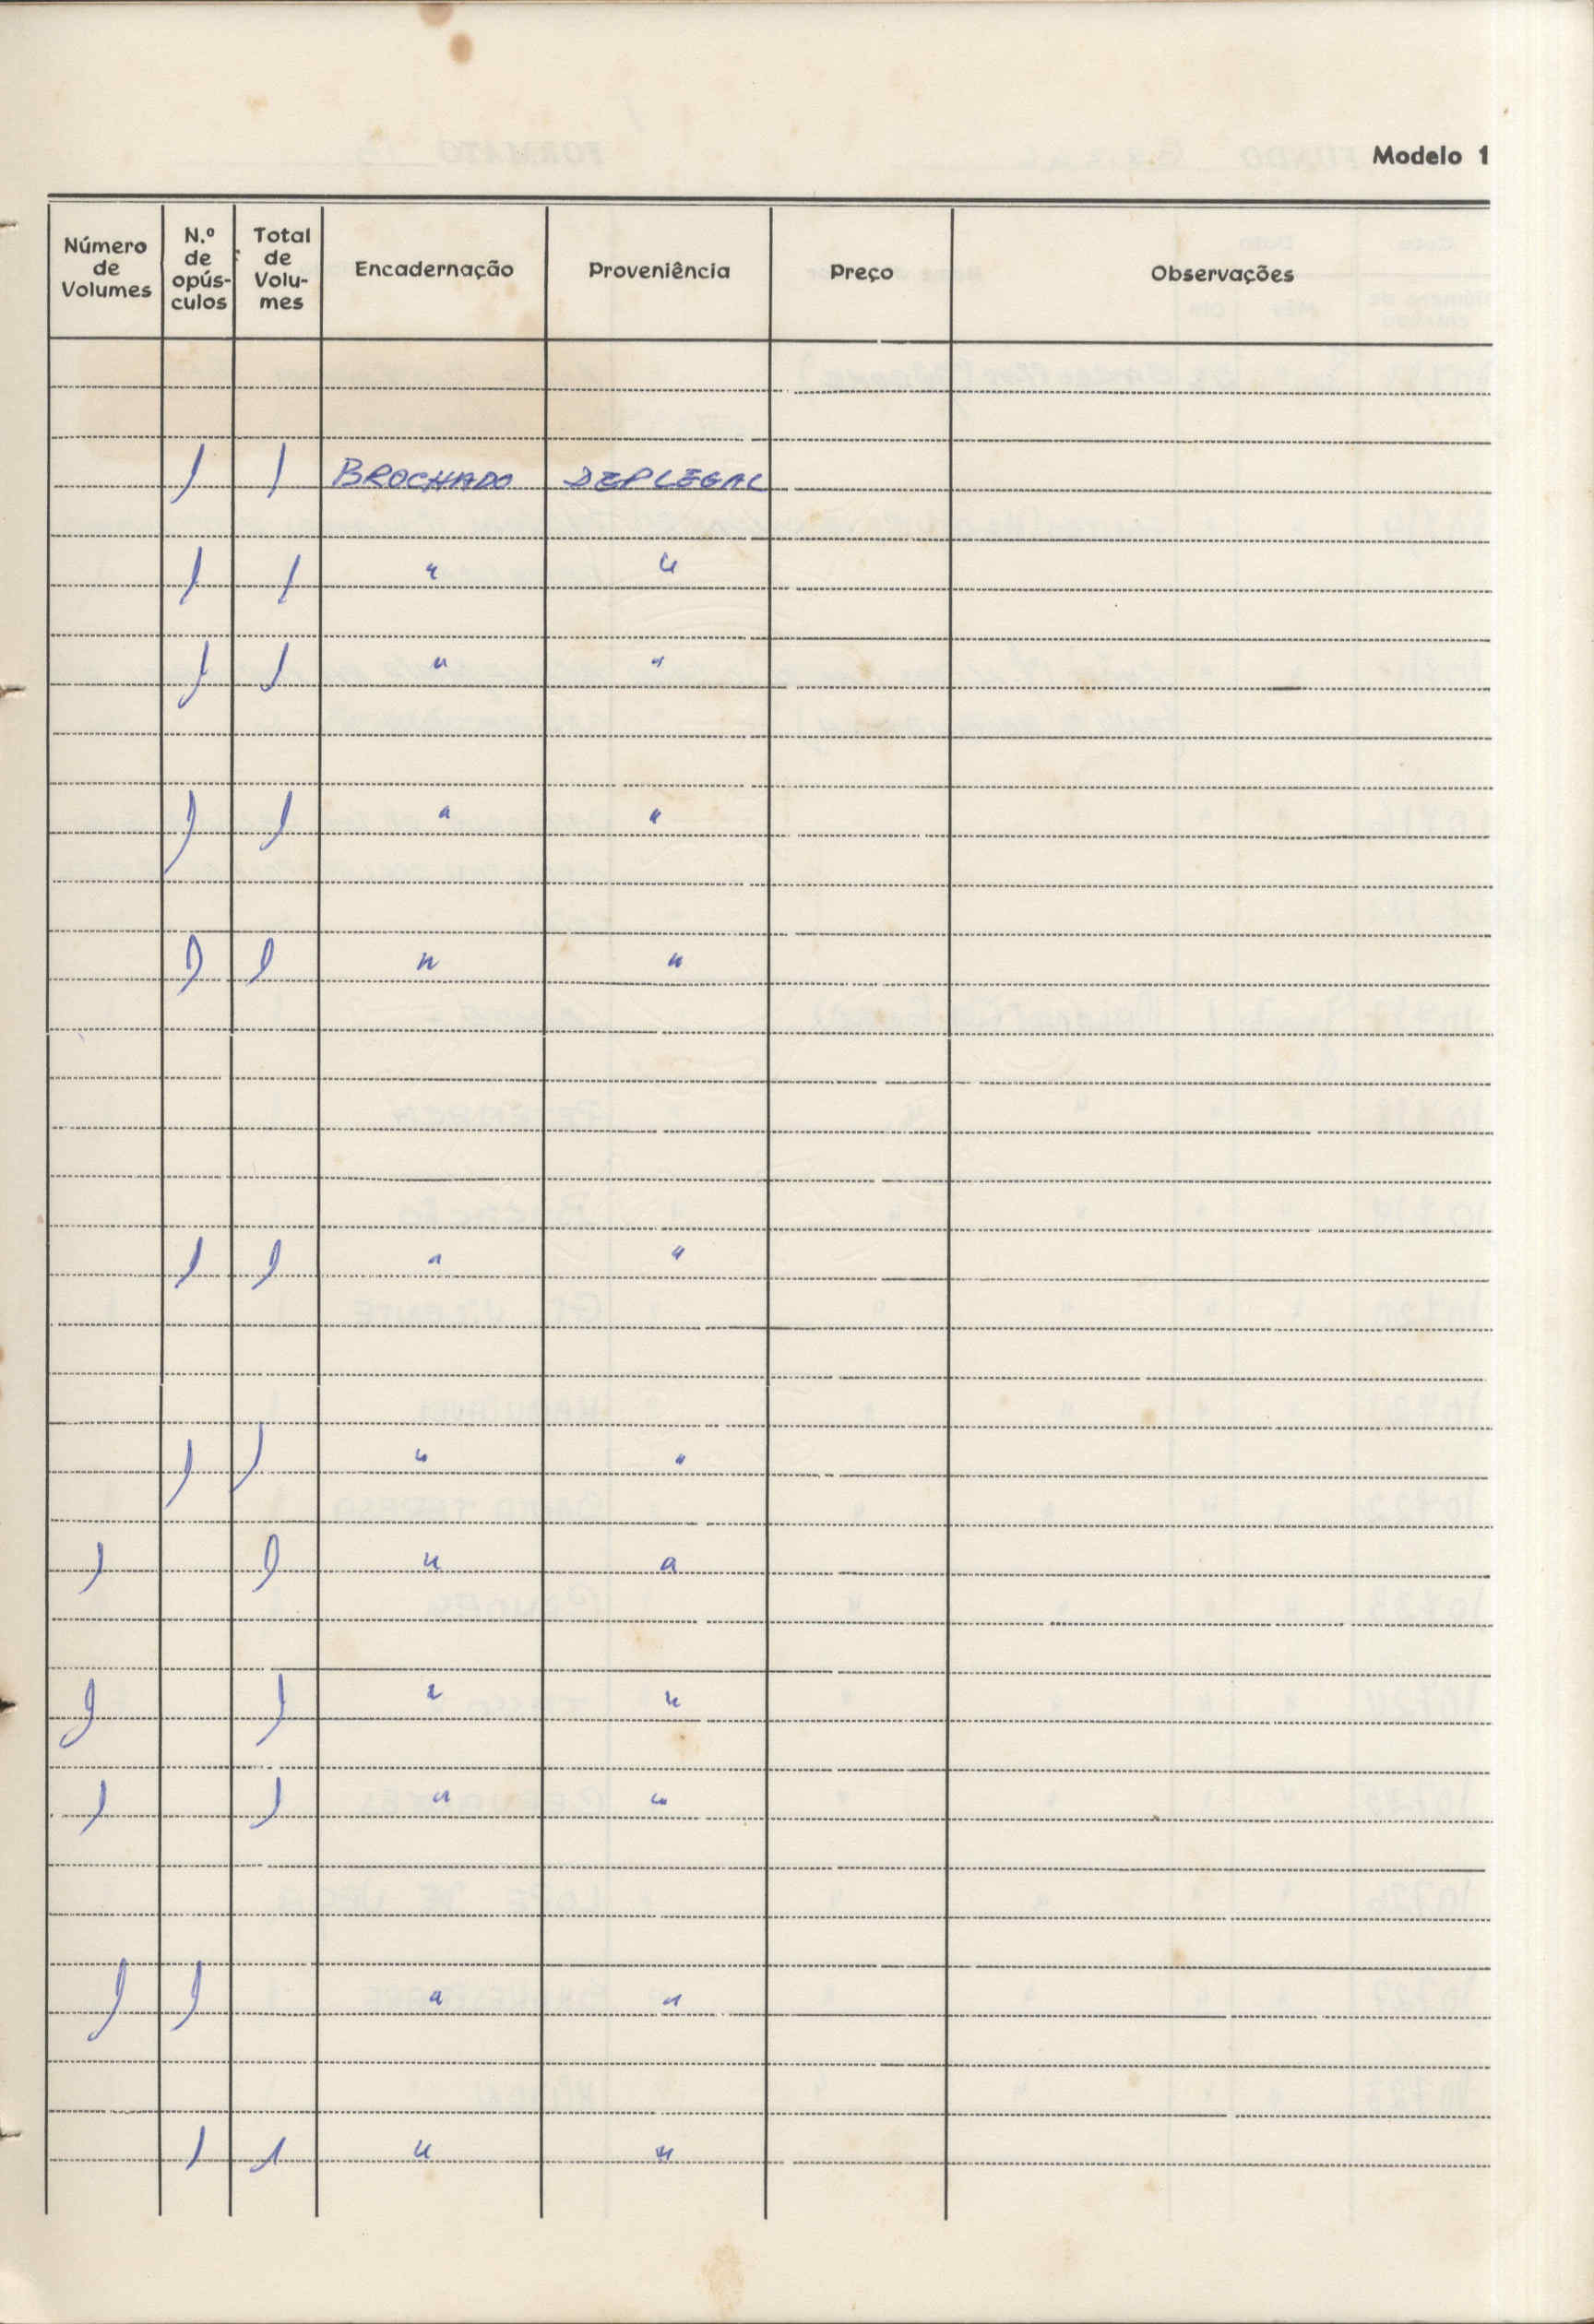 Modelo 1
Número de Volumes N.º de opús-culos Total de Volu-mes Encadernação Proveniência Preço Observações
1 1 BROCHADO DEP LEGAL
1 1 " "
1 1 " "
1 1 " "
1 1 " "
1 1 " "
1 1 " "
1 1 " "
1 1 " "
1 1 " "
1 1 " "
1 1 " "